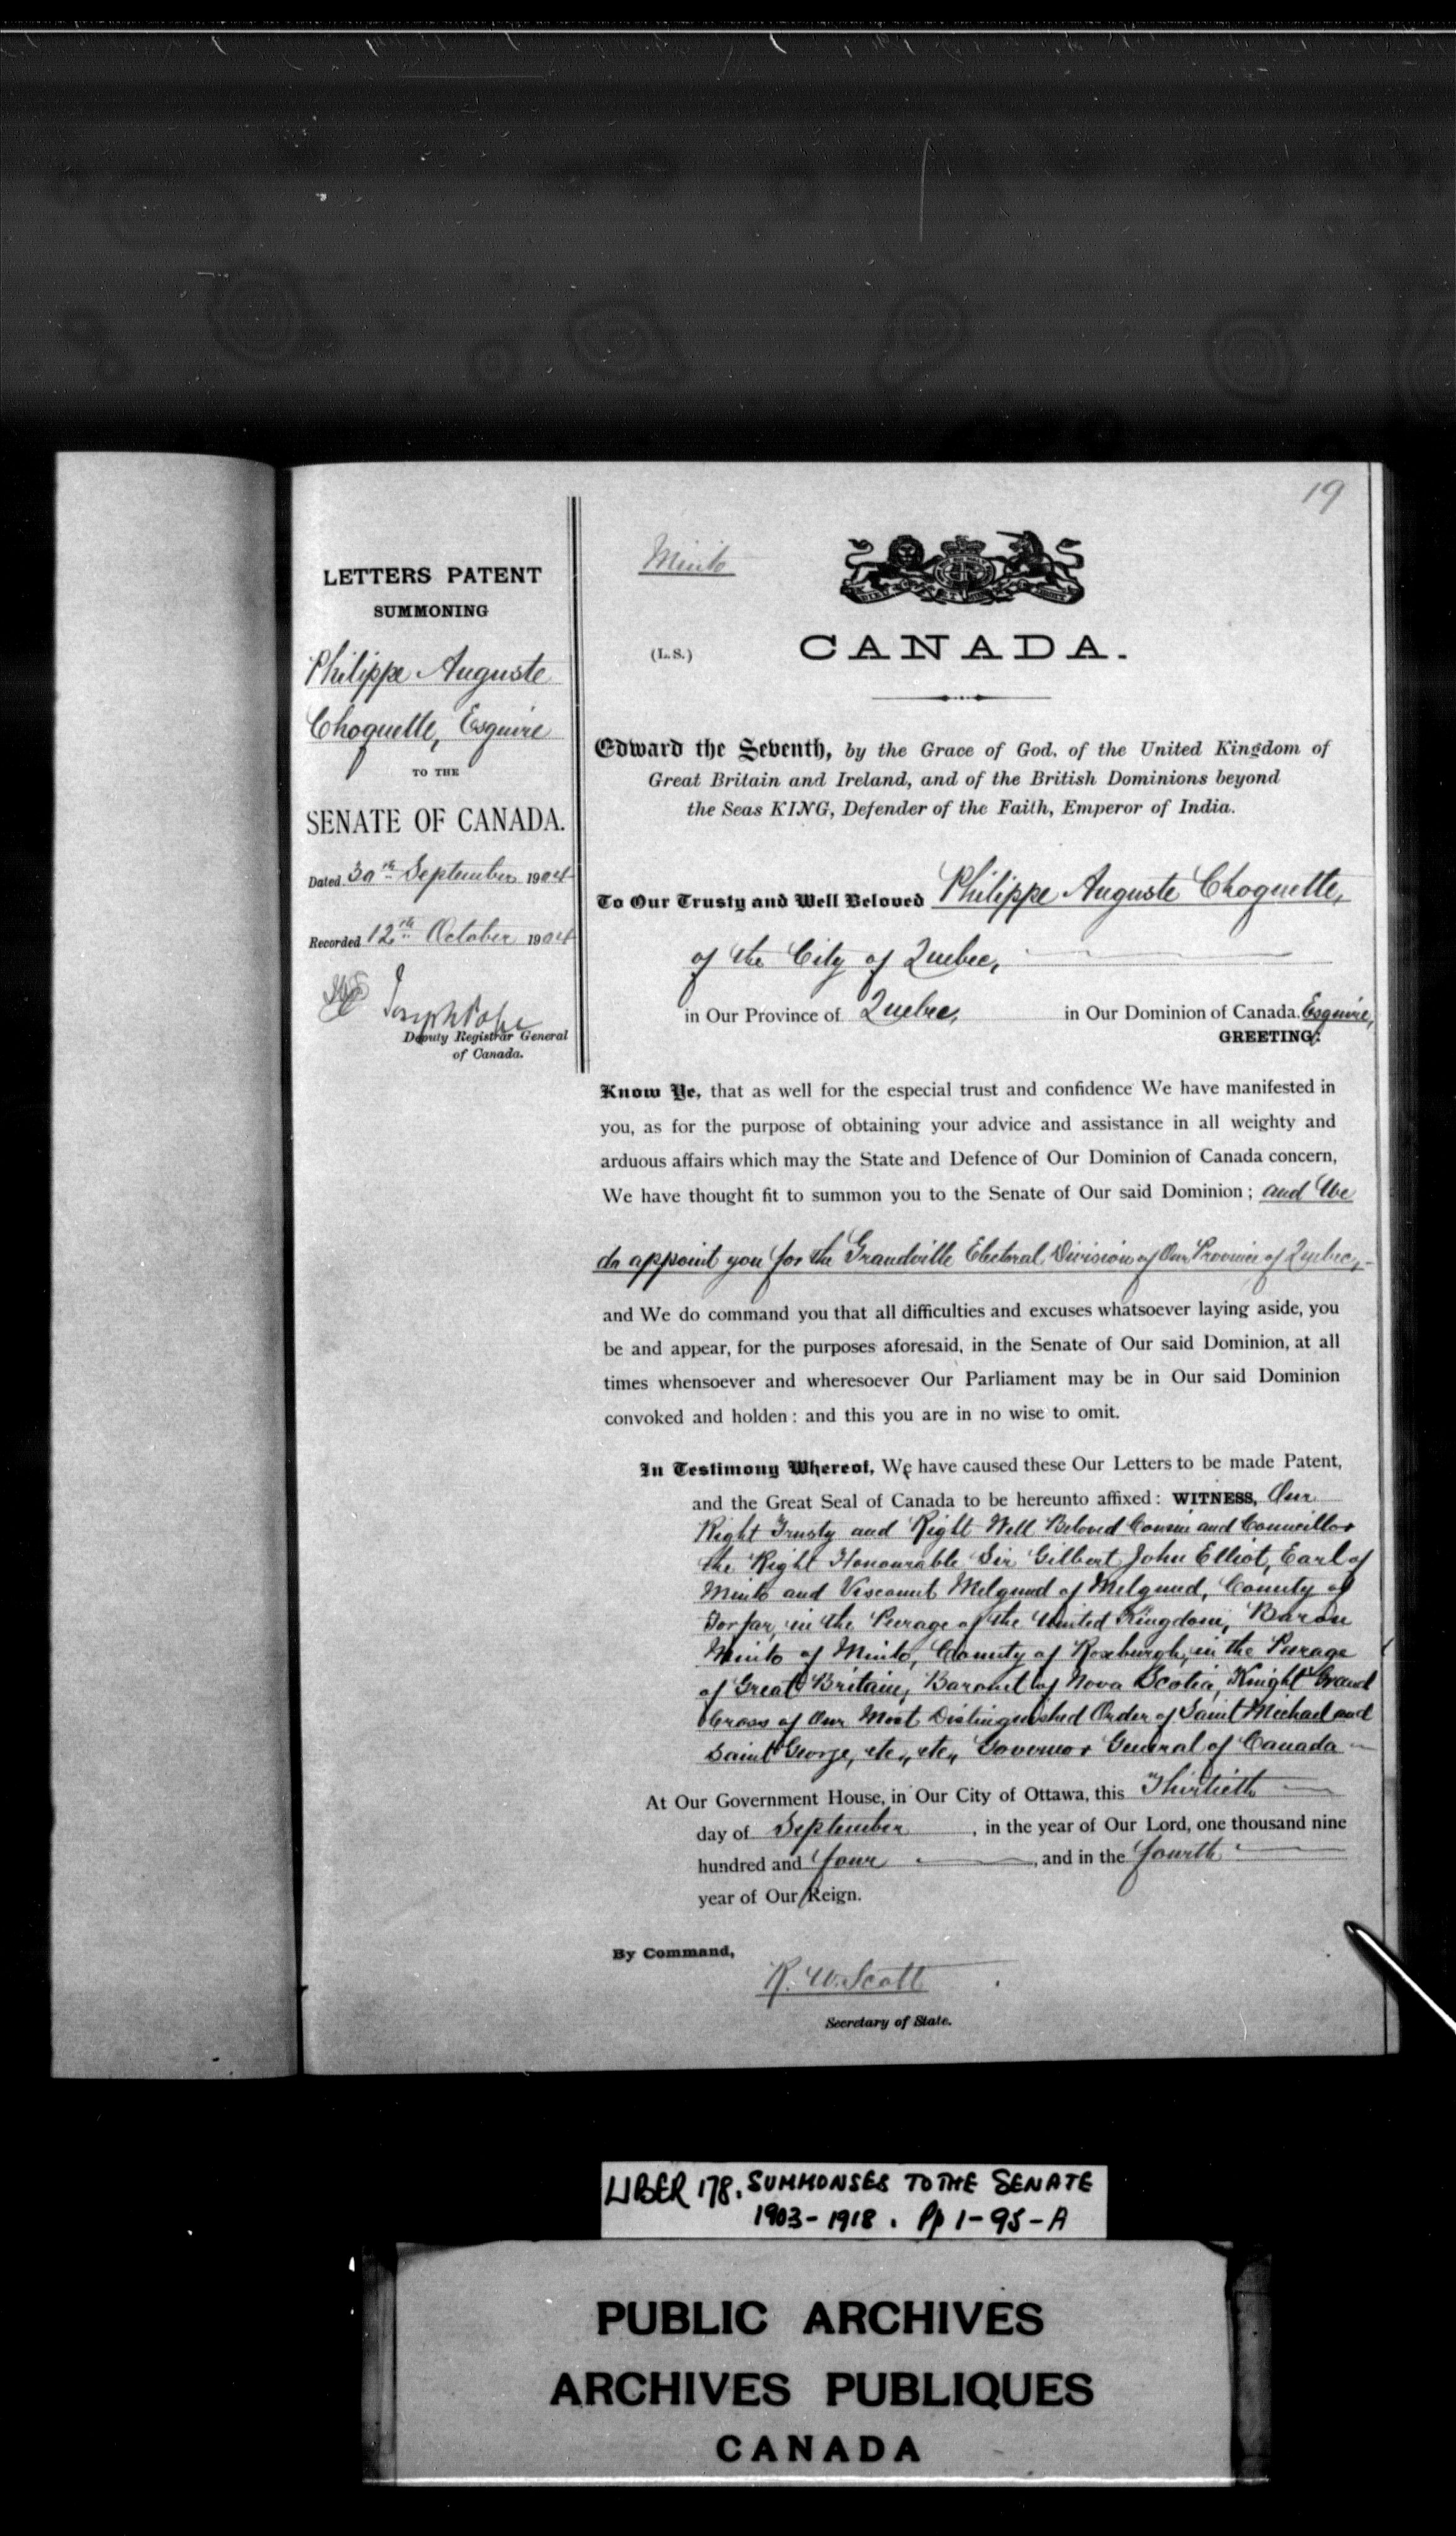 19
LETTERS PATENT
SUMMONING
Philippe Auguste
Choquette, Esquire
TO THE
SENATE OF CANADA.
Dated 30th September 1904
Recorded 12th October 1904
Joseph Pope
Deputy Registrar General
of Canada.
Minto
(L.S.)
CANADA.
Edward the Seventh, by the Grace of God, of the United Kingdom of
Great Britain and Ireland, and of the British Dominions beyond
the Seas KING, Defender of the Faith, Emperor of India.
To Our Trusty and Well Beloved Philippe Auguste Choquette,
of the City of Quebec,
in Our Province of Quebec, in Our Dominion of Canada. Esquire,
GREETING:
Know Ye, that as well for the especial trust and confidence We have manifested in
you, as for the purpose of obtaining your advice and assistance in all weighty and
arduous affairs which may the State and Defence of Our Dominion of Canada concern,
We have thought fit to summon you to the Senate of Our said Dominion; and We
do appoint you for the Grandville Electoral Division of Our Province of Quebec,
and We do command you that all difficulties and excuses whatsoever laying aside, you
be and appear, for the purposes aforesaid, in the Senate of Our said Dominion, at all
times whensoever and wheresoever Our Parliament may be in Our said Dominion
convoked and holden: and this you are in no wise to omit.
In Testimony Whereof, We have caused these Our Letters to be made Patent,
and the Great Seal of Canada to be hereunto affixed: WITNESS, Our
Right Trusty and Right Well Beloved Cousin and Councillor
the Right Honourable Sir Gilbert John Elliot, Earl of
Minto and Viscount Melgund of Melgund, County of
Forfar, in the Peerage of the United Kingdom, Baron
Minto of Minto, County of Roxburgh, in the Peerage
of Great Britain, Baronet of Nova Scotia, Knight Grand
Cross of Our Most Distinguished Order of Saint Michael and
Saint George, etc., etc., Governor General of Canada
At Our Government House, in Our City of Ottawa, this Thirtieth
day of September, in the year of Our Lord, one thousand nine
hundred and four, and in the fourth
year of Our Reign.
By Command,
R. W. Scott
Secretary of State.
LIBER 178. SUMMONSES TO THE SENATE
1903-1918. Pp 1-95-A
PUBLIC ARCHIVES
ARCHIVES PUBLIQUES
CANADA